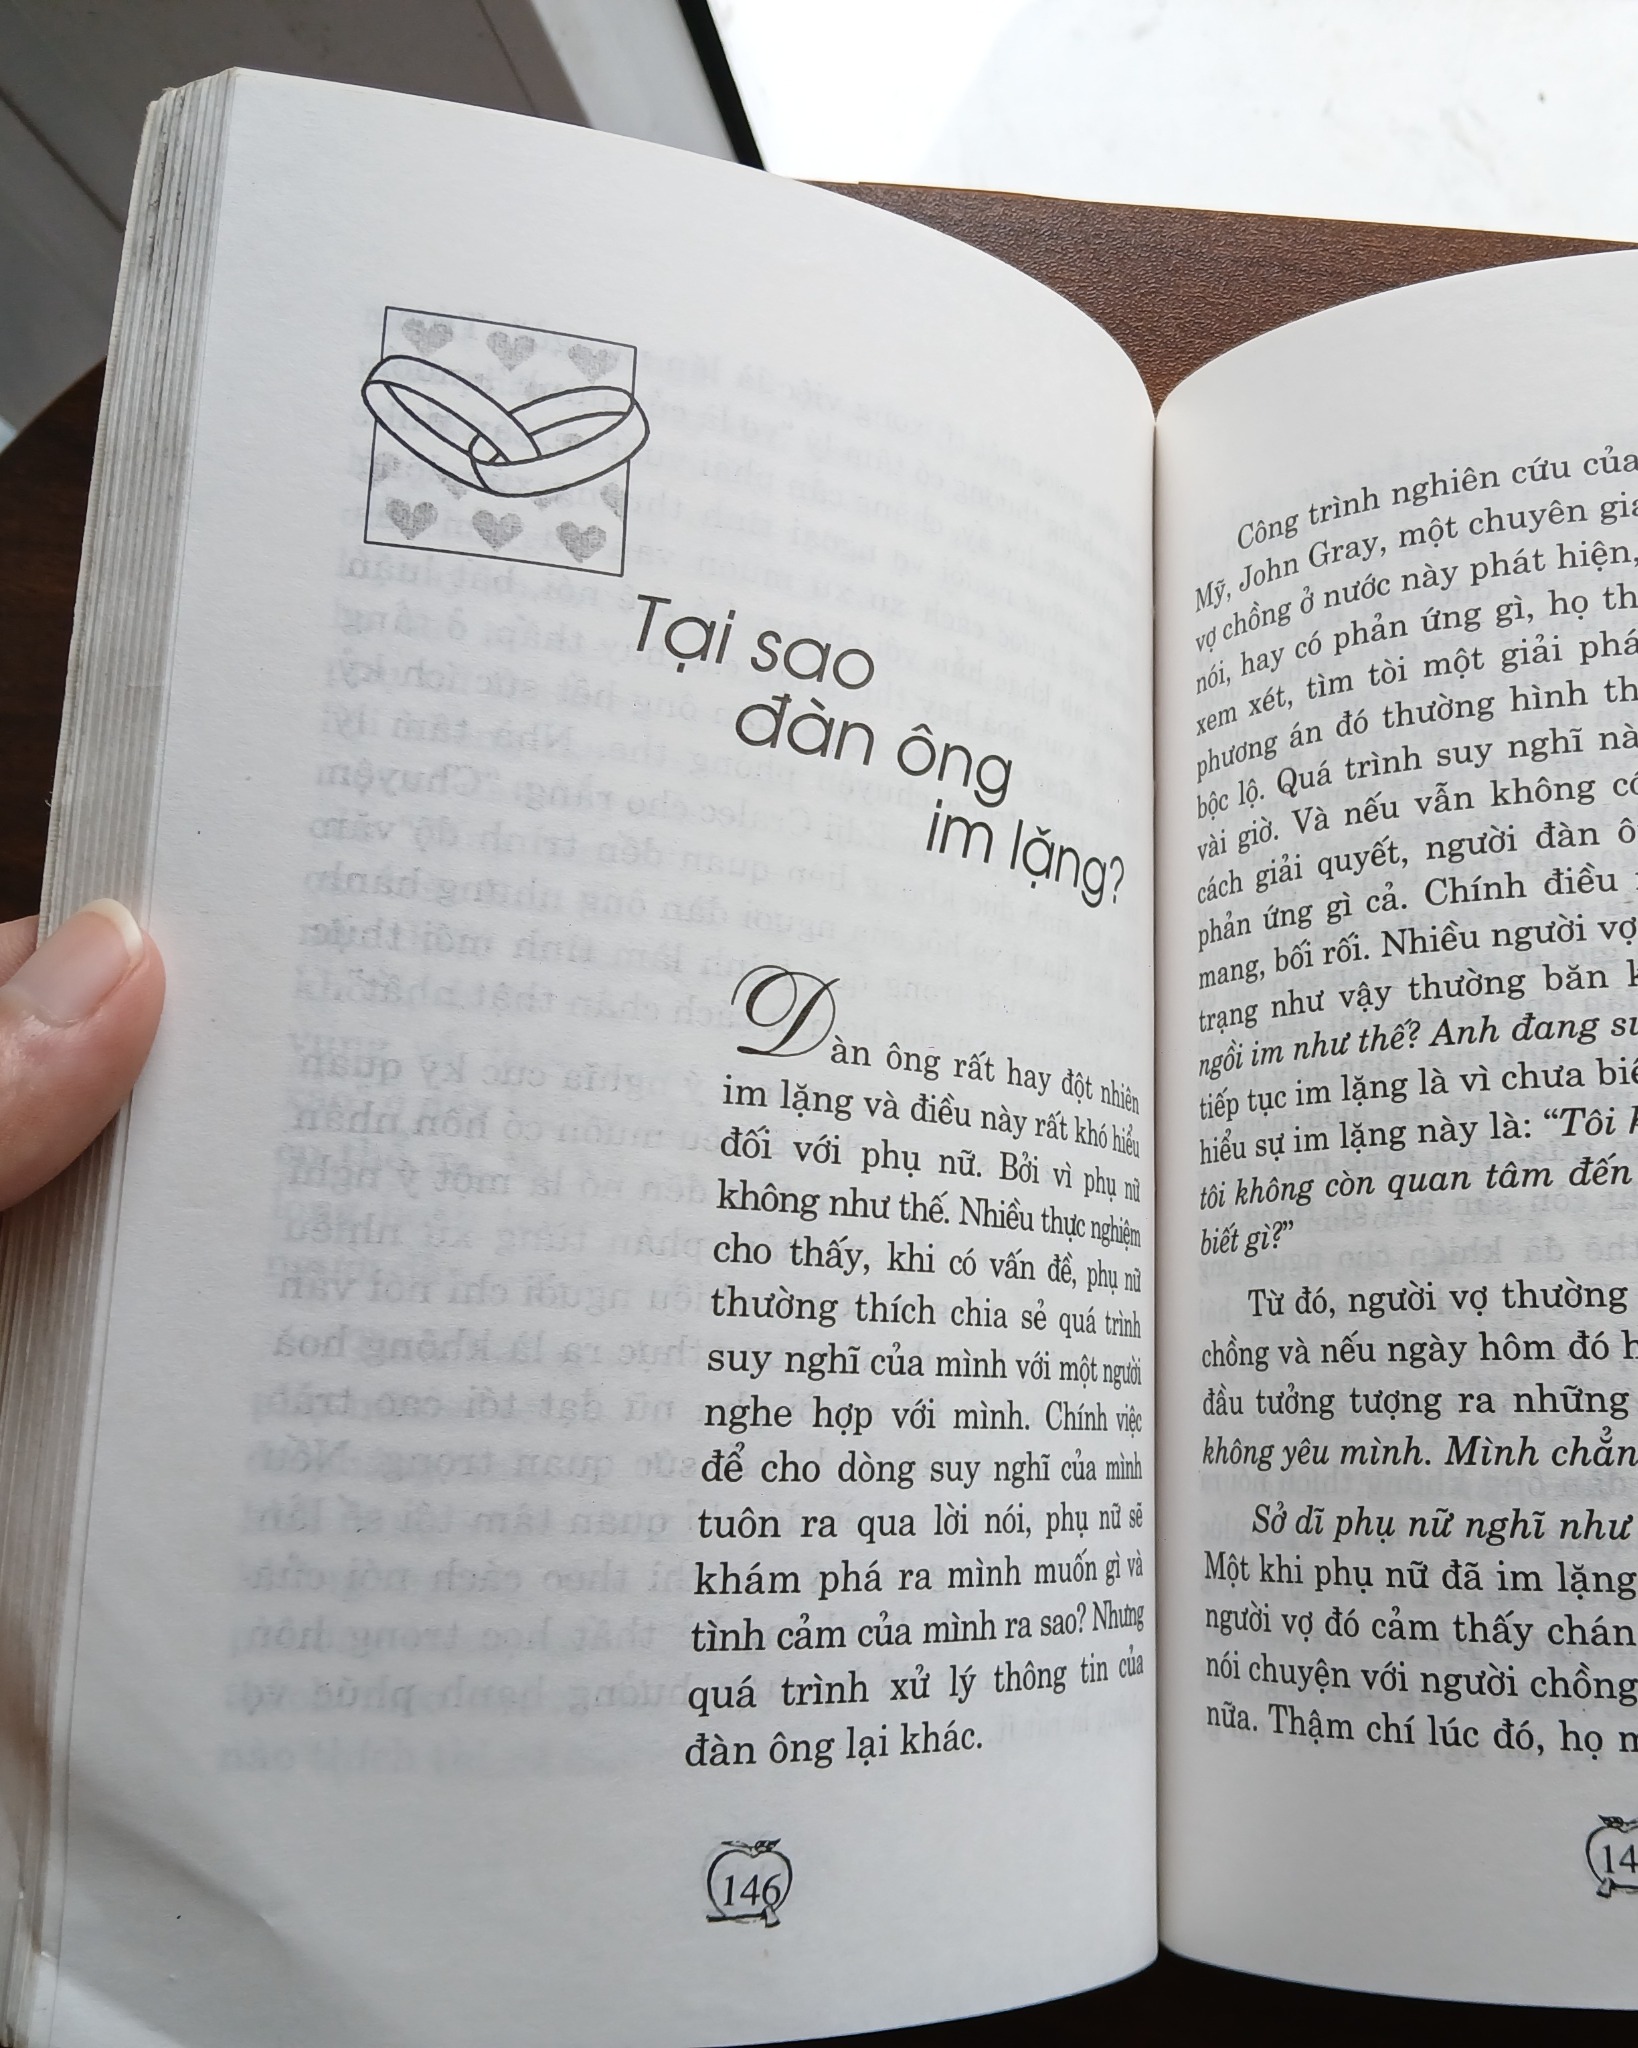 Tại sao
đàn ông
im lặng?
Đàn ông rất hay đột nhiên
im lặng và điều này rất khó hiểu
đối với phụ nữ. Bởi vì phụ nữ
không như thế. Nhiều thực nghiệm
cho thấy, khi có vấn đề, phụ nữ
thường thích chia sẻ quá trình
suy nghĩ của mình với một người
nghe hợp với mình. Chính việc
để cho dòng suy nghĩ của mình
tuôn ra qua lời nói, phụ nữ sẽ
khám phá ra mình muốn gì và
tình cảm của mình ra sao? Nhưng
quá trình xử lý thông tin của
đàn ông lại khác.
146
Công trình nghiên cứu của
Mỹ, John Gray, một chuyên gia
vợ chồng ở nước này phát hiện,
nói, hay có phản ứng gì, họ th
xem xét, tìm tòi một giải phá
phương án đó thường hình th
bộc lộ. Quá trình suy nghĩ nà
vài giờ. Và nếu vẫn không có
cách giải quyết, người đàn ô
phản ứng gì cả. Chính điều
mang, bối rối. Nhiều người vợ
trạng như vậy thường băn k
ngồi im như thế? Anh đang su
tiếp tục im lặng là vì chưa biế
hiểu sự im lặng này là: “Tôi k
tôi không còn quan tâm đến
biết gì?”
Từ đó, người vợ thường
chồng và nếu ngày hôm đó h
đầu tưởng tượng ra những
không yêu mình. Mình chẳn
Sở dĩ phụ nữ nghĩ như
Một khi phụ nữ đã im lặng
người vợ đó cảm thấy chán
nói chuyện với người chồng
nữa. Thậm chí lúc đó, họ m
14